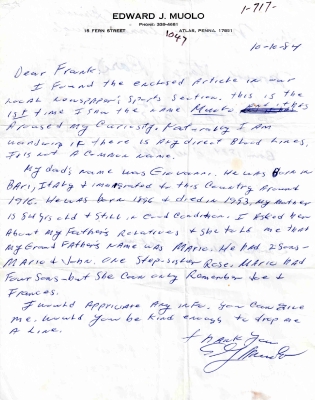 EDWARD J. MUOLO
PHONE: 339-4681
15 FERN STREET
ATLAS, PENNA. 17851
1-717-
1047
10-10-84
Dear Frank:
I found the enclosed Article in our
Local Newspaper, Sports Section. This is the
1st time I saw the name Muolo
Aroused my Curiosity. Naturally I Am
if there is Any direct Blood Lines,
It is not A Common Name.
My dad's name was Giovanni. He was Born in
BAri, Italy & immigrated to this Country Around
1916. He was born 1896 & died in 1953. My Mother
is 84 yrs old & Still in Good Condition. I Asked her
About my Father's Relatives & she told me that
my Grand Father's Name was Mario. He had 2 Sons-
Mario & John. One Step-sister Rose. Mario Had
Four Sons-but She Can only Remember Joe &
Frances.
I would Appriciate Any info. you Can Give
me. Would you be Kind enough to drop me
A Line.
Thank you
E J Muolo